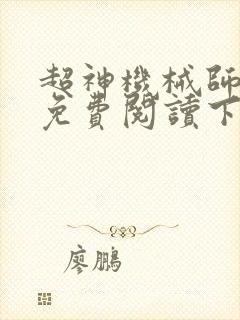 超神機械師
免費閱讀下
廖鵬